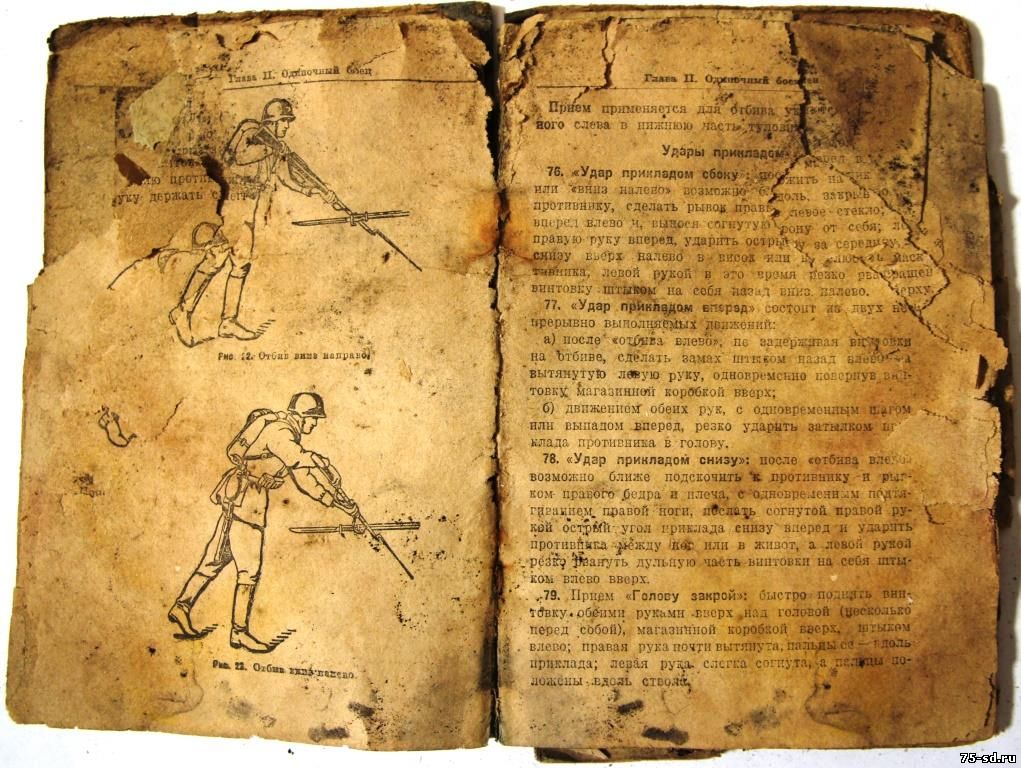 Глава II. Одиночный боец
противн
руку держать
Рис. 22. Отбив вниз направо.
Рис. 23. Отбив вниз налево.
Глава II. Одиночный
Прием применяется для отбива
ного слева в нижнюю часть
Удары прикладом
76. «Удар прикладом сбоку»:
или «вниз налево» возможно
противнику, сделать рывок левое стекло;
вперед влево и, вынося согнутую рону от себя;
правую руку вперед, ударить за середину,
снизу вверх налево в висок или
тивника, левой рукой в это время резко
винтовку штыком на себя назад вниз налево. верху
77. «Удар прикладом вперед» состоит из двух не-
прерывно выполняемых движений:
а) после «отбива влево», не задерживая винтовки
на отбиве, сделать замах штыком назад влево на
вытянутую левую руку, одновременно повернув вин-
товку магазинной коробкой вверх;
б) движением обеих рук, с одновременным шагом
или выпадом вперед, резко ударить затылком при-
клада противника в голову.
78. «Удар прикладом снизу»: после «отбива влево»
возможно ближе подскочить к противнику и рыв-
ком правого бедра и плеча, с одновременным подтя-
гиванием правой ноги, послать согнутой правой ру-
кой острый угол приклада снизу вперед и ударить
противника между ног или в живот, а левой рукой
резко рвануть дульную часть винтовки на себя шты-
ком влево вверх.
79. Прием «Голову закрой»: быстро поднять вин-
товку обеими руками вверх над головой (несколько
перед собой), магазинной коробкой вверх, штыком
влево; правая рука почти вытянута, пальцы ее — вдоль
приклада; левая рука слегка согнута, а пальцы по-
ложены вдоль ствола.
75-sd.ru